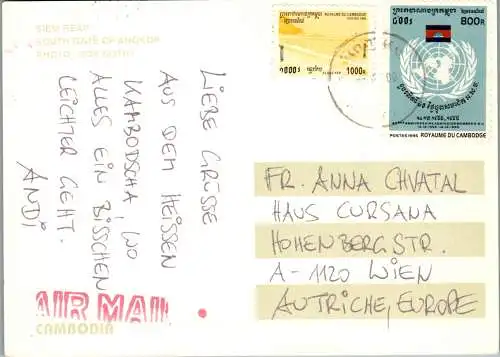 SIEM REAP
SOUTH GATE OF ANGKOR
LIEBE GRÜSSE
AUS DEM HEISSEN
KAMBODSCHA, WO
ALLES EIN BISSCHEN
LEICHTER GEHT.
ANDI
AIR MAIL
CAMBODIA
1000R
800R
POSTES 1995 ROYAUME DU CAMBODGE
FR. ANNA CHVATAL
HAUS CURSANA
HOHENBERGSTR.
A-1120 WIEN
AUTRICHE, EUROPE